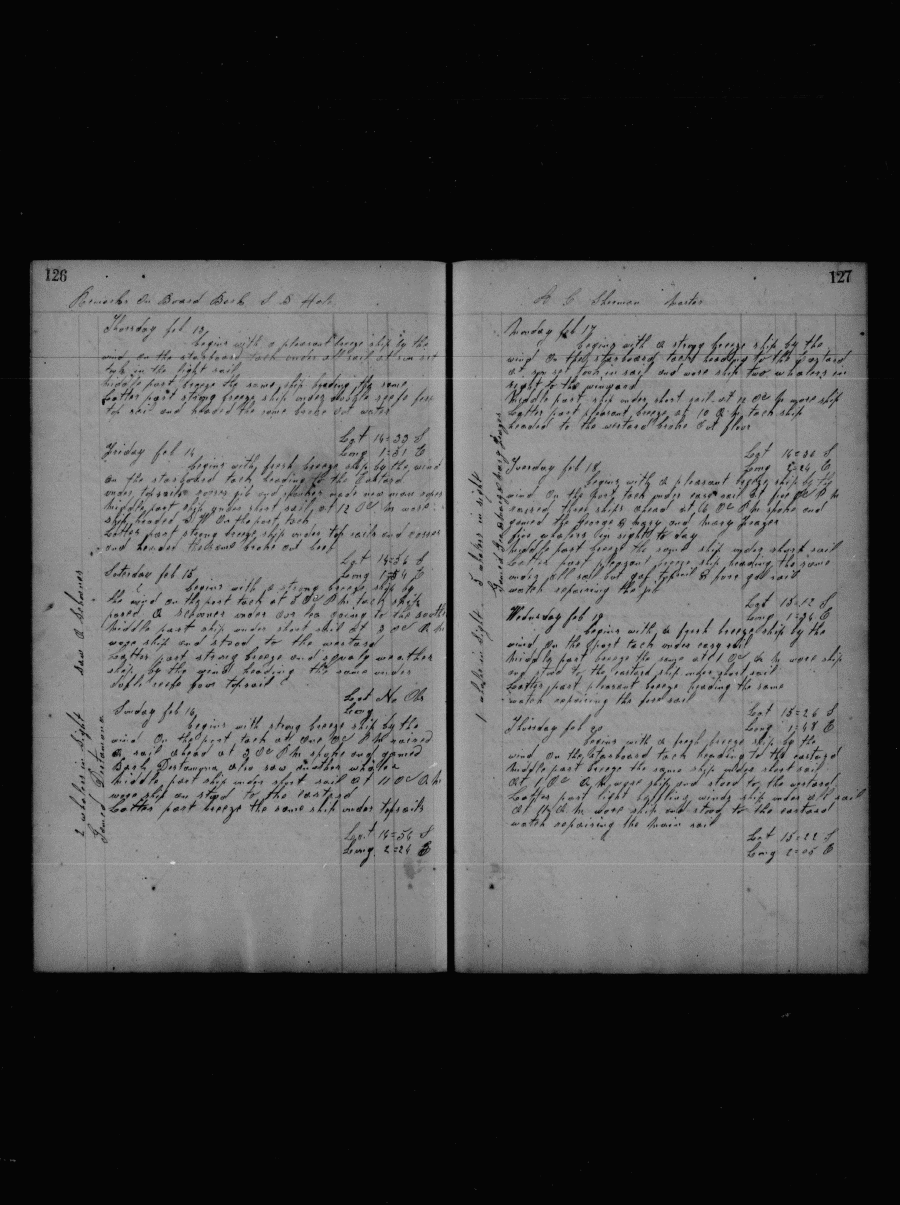 126
Remarks On Board Bark
Thursday feb 13
begins with a pleasant breeze ship by the
wind on the starboard tack under all sail at sun set
took in the light sail
Middle part breeze the same ship heading the same
Latter part strong breeze ship under double reefs fore
top sail and headed the same broke out water
Lat 14=33 S
Long 1=31 E
Friday feb 14
begins with fresh breeze ship by the wind
on the starboard tack heading to the Eastard
under topsails jib and
Middle part ship under short sail at 12 Oc M wore
ship headed S W On the port tack
Latter part strong breeze ship under top sails and
and headed the same broke out beef
Lat 14=56 S
Long E
Saturday feb 15
begins with a strong breeze ship by
the wind on the port tack at 5 Oc P M tack ship
passed a schooner under our lea going to the
Middle part ship under short sail at 3 Oc A M
wore ship and stood to the westard
Latter part strong breeze and squaly weather
ship by the wind heading the same under
duble reefs four topsail
Lat No Obs
Long
Sunday feb 16
begins with strong breeze ship by the
wind On the port tack at One Oc P M raised
a sail ahead at 3 Oc P M spoke and gamed
Bark also saw another whaler
Middle part ship under short sail at 11 Oc A M
wore ship an stood to the eastard
Latter part breeze the same ship under topsails
Lat 14=56 S
Long 2=24 E
saw a schooner
2 whalers in sight
Gamed
127
Sherman Master
Monday feb 17
begins with a strong breeze ship by the
wind On the starboard tack heading to the Eastard
at sun set took in sail and wore ship two whalers in
sight to the winyard
Middle part ship under short sail at 12 Oc M wore ship
Latter part pleasant breeze at 10 A M tack ship
headed to the westard broke Out flour
Lat S
Long 2=24 E
Tuesday feb 18
begins with a pleasant breeze ship by the
wind On the port tack under easy sail at five Oc P M
raised three ships ahead at 6 Oc P M spoke and
gamed the George & Mary and Mary Frazer
five whalers in sight to day
Middle part breeze the same ship under short sail
Latter part pleasant breeze ship heading the same
under all sail but gaf topsail & fore gal sail
watch repairing the jib
Lat 15=12 S
Long 1=36 E
Wednesday feb 19
begins with a fresh breeze ship by the
wind On the port tack under easy sail
Middle part breeze the same at 1 Oc A M wore ship
and stood to the eastard ship under short sail
Latter part pleasant breeze heading the same
watch repairing the fore sail
Lat 15=26 S
Long 1=48 E
Thursday feb 20
begins with a fresh breeze ship by the
wind On the Starboard tack heading to the eastard
Middle part breeze the same ship under short sail
At 1 Oc A M wore ship and stood to the westard
Latter part light baffling winds ship under all sail
At 11 A M wore ship and stood to the eastard
watch repairing the main sail
Lat 15=22 S
Long 2=05 E
5 whalers in sight
1 whaler in sight